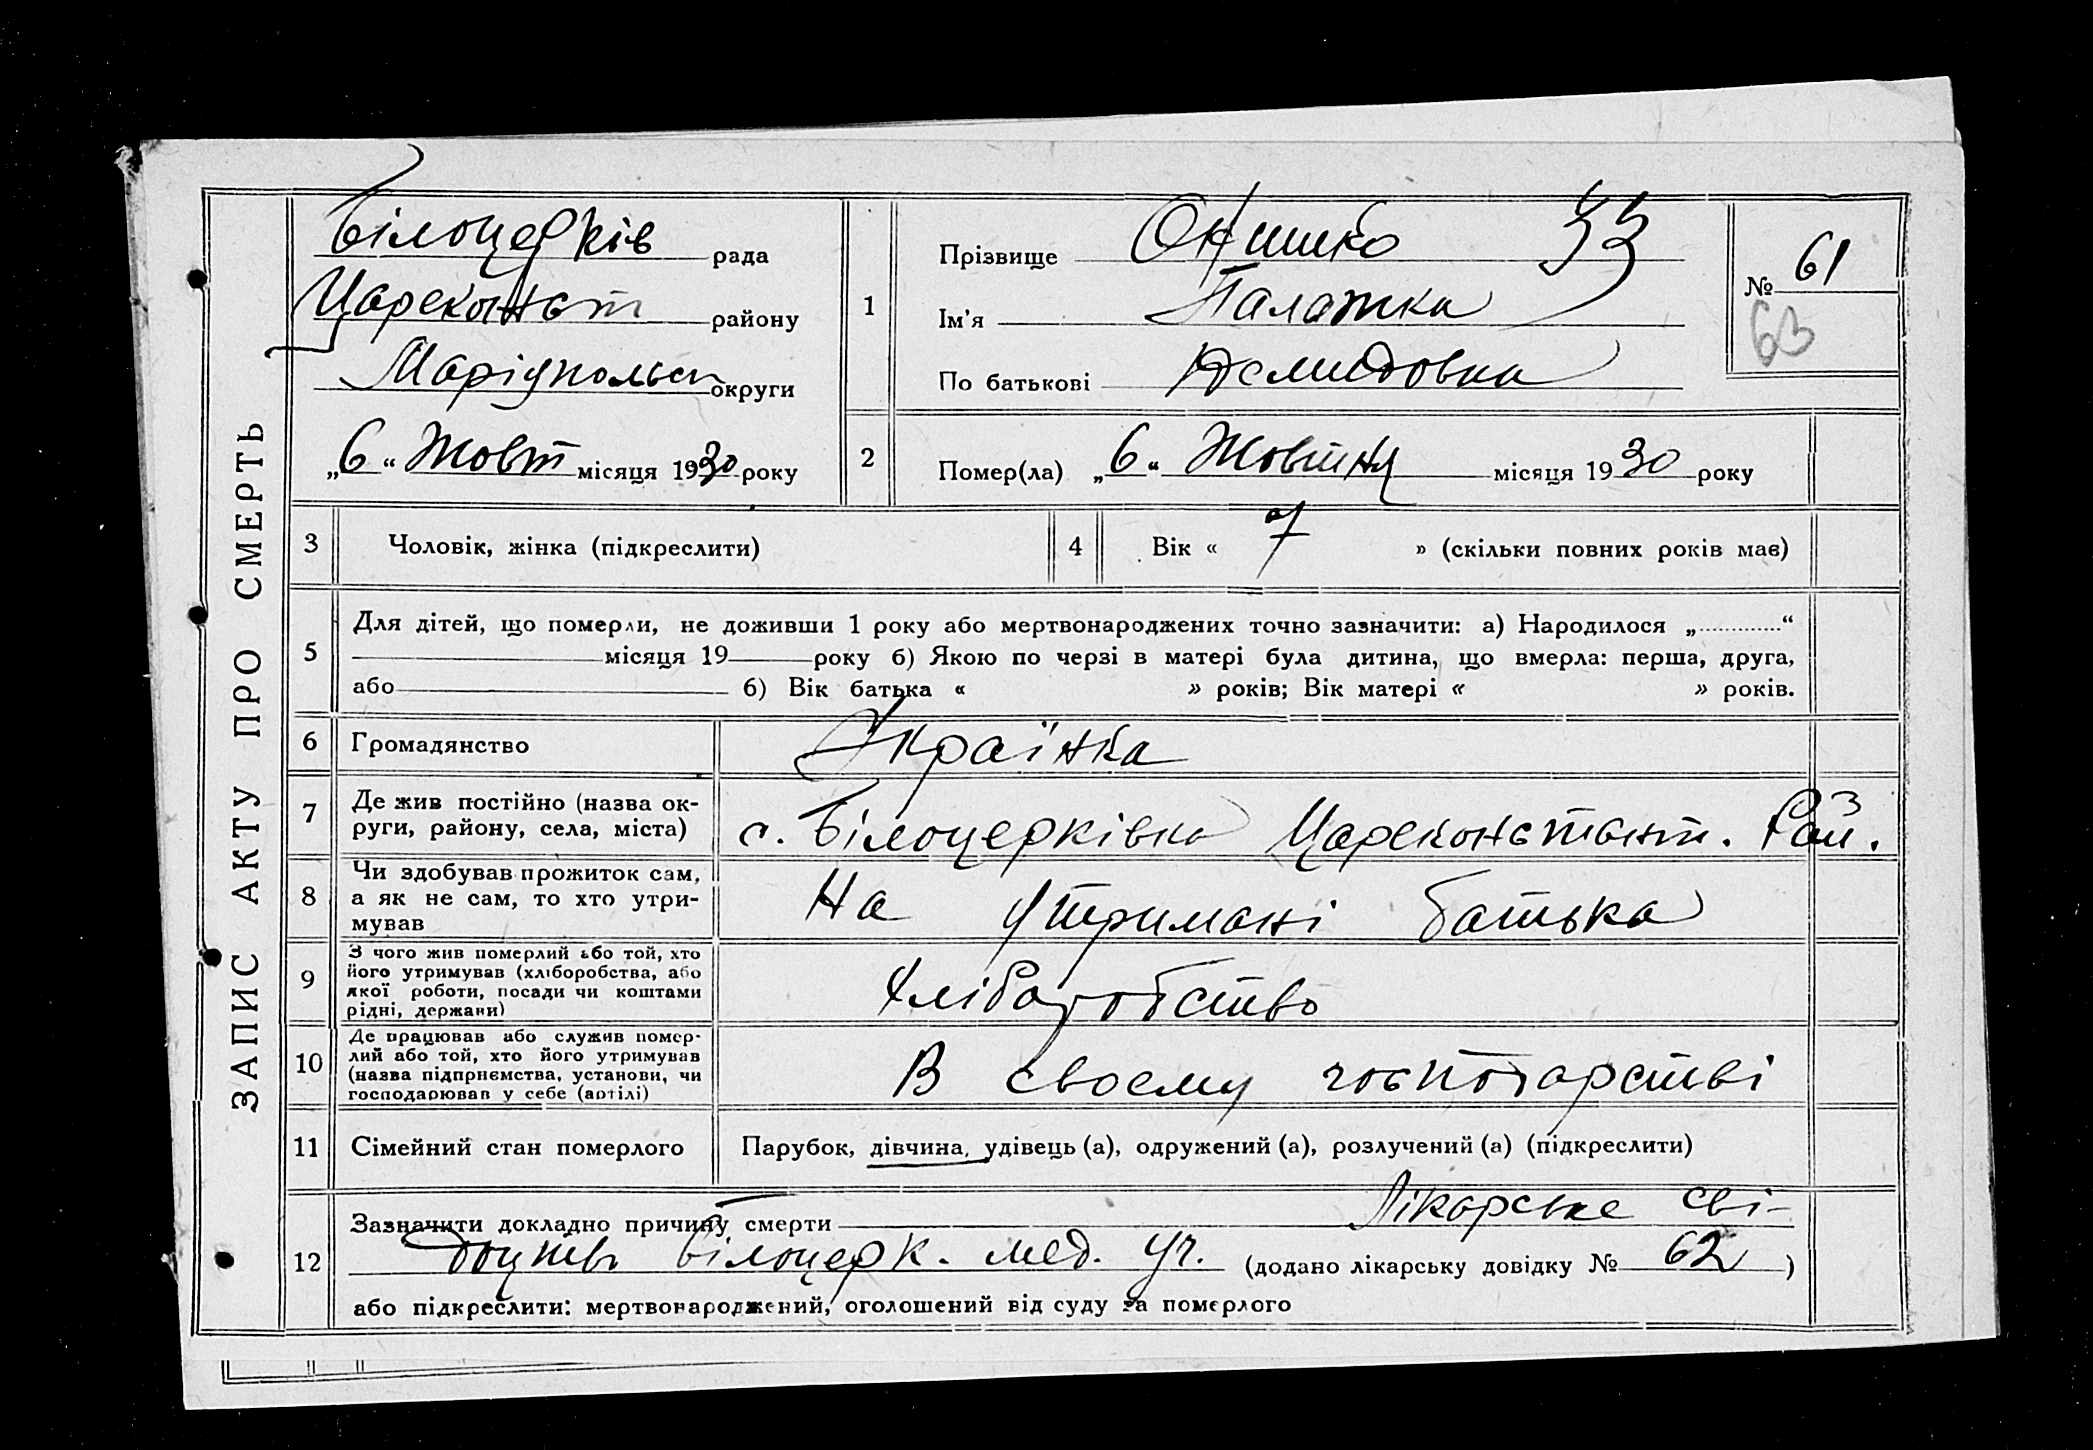 ЗАПИС АКТУ ПРО СМЕРТЬ
Білоцерків рада
Цареконст району
Маріупольськ округи
„6“ Жовт місяця 1930 року
1
Прізвище Онишко 33
Ім'я Палажка
По батькові Демидовна
№ 61
63
2
Помер(ла) „6“ Жовтня місяця 1930 року
3 Чоловік, жінка (підкреслити)
4 Вік « 7 » (скільки повних років мав)
5
Для дітей, що померли, не доживши 1 року або мертвонароджених точно зазначити: а) Народилося „ “
місяця 19 року б) Якою по черзі в матері була дитина, що вмерла: перша, друга,
або б) Вік батька « » років; Вік матері « » років.
6 Громадянство Українка
7 Де жив постійно (назва ок-
руги, району, села, міста)
с. Білоцерківка Цареконстант. Рай.
8 Чи здобував прожиток сам,
а як не сам, то хто утри-
мував
На утримані батька
9 З чого жив померлий або той, хто
його утримував (хліборобства, або
якої роботи, посади чи коштами
рідні, держави)
Хліборобство
10 Де працював або служив помер-
лий або той, хто його утримував
(назва підприємства, установи, чи
господарював у себе (артілі)
В своему господарстві
11 Сімейний стан померлого
Парубок, дівчина, удівець (а), одружений (а), розлучений (а) (підкреслити)
12
Зазначити докладно причину смерти Лікарське сві-
доцтв Білоцерк. мед. уч. (додано лікарську довідку № 62)
або підкреслити: мертвонароджений, оголошений від суду за померлого